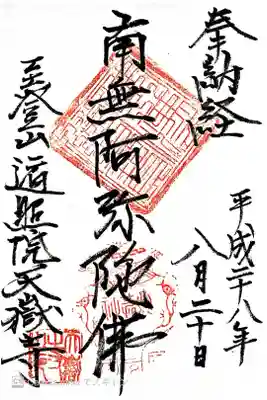 奉納経
平成二十八年
八月二十日
南無阿弥陀佛
至登山遍照院天嶽寺